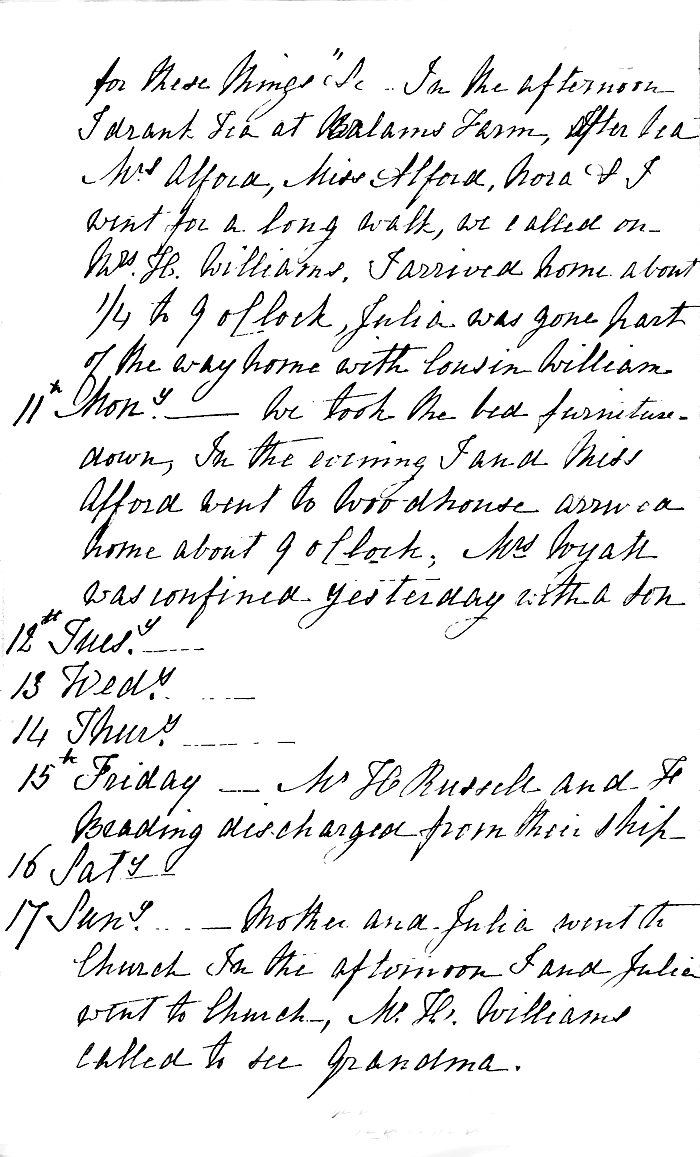 for these things" &c .. In the afternoon
I drank Tea at Balams Farm, After tea
Mrs Alford, Miss Alford, Nora & I
went for a long walk, we called on
Mrs. H. Williams. I arrived home about
1/4 to 9 oClock, Julia was gone part
of the way home with Cousin William
11th Mony. —— We took the bed furniture
down, In the evening I and Miss
Alford went to Woodhouse arrived
home about 9 oClock, Mrs Wyatt
was confined yesterday with a son
12th Tues.y ——
13 Wed.y ——
14 Thur.y ——
15th Friday — Mr H Russell and H
Brading discharged from their ship
16 Saty —
17 Sun.y ... — Mother and Julia went to
Church In the afternoon I and Julia
went to Church, Mr. H. Williams
called to see Grandma.